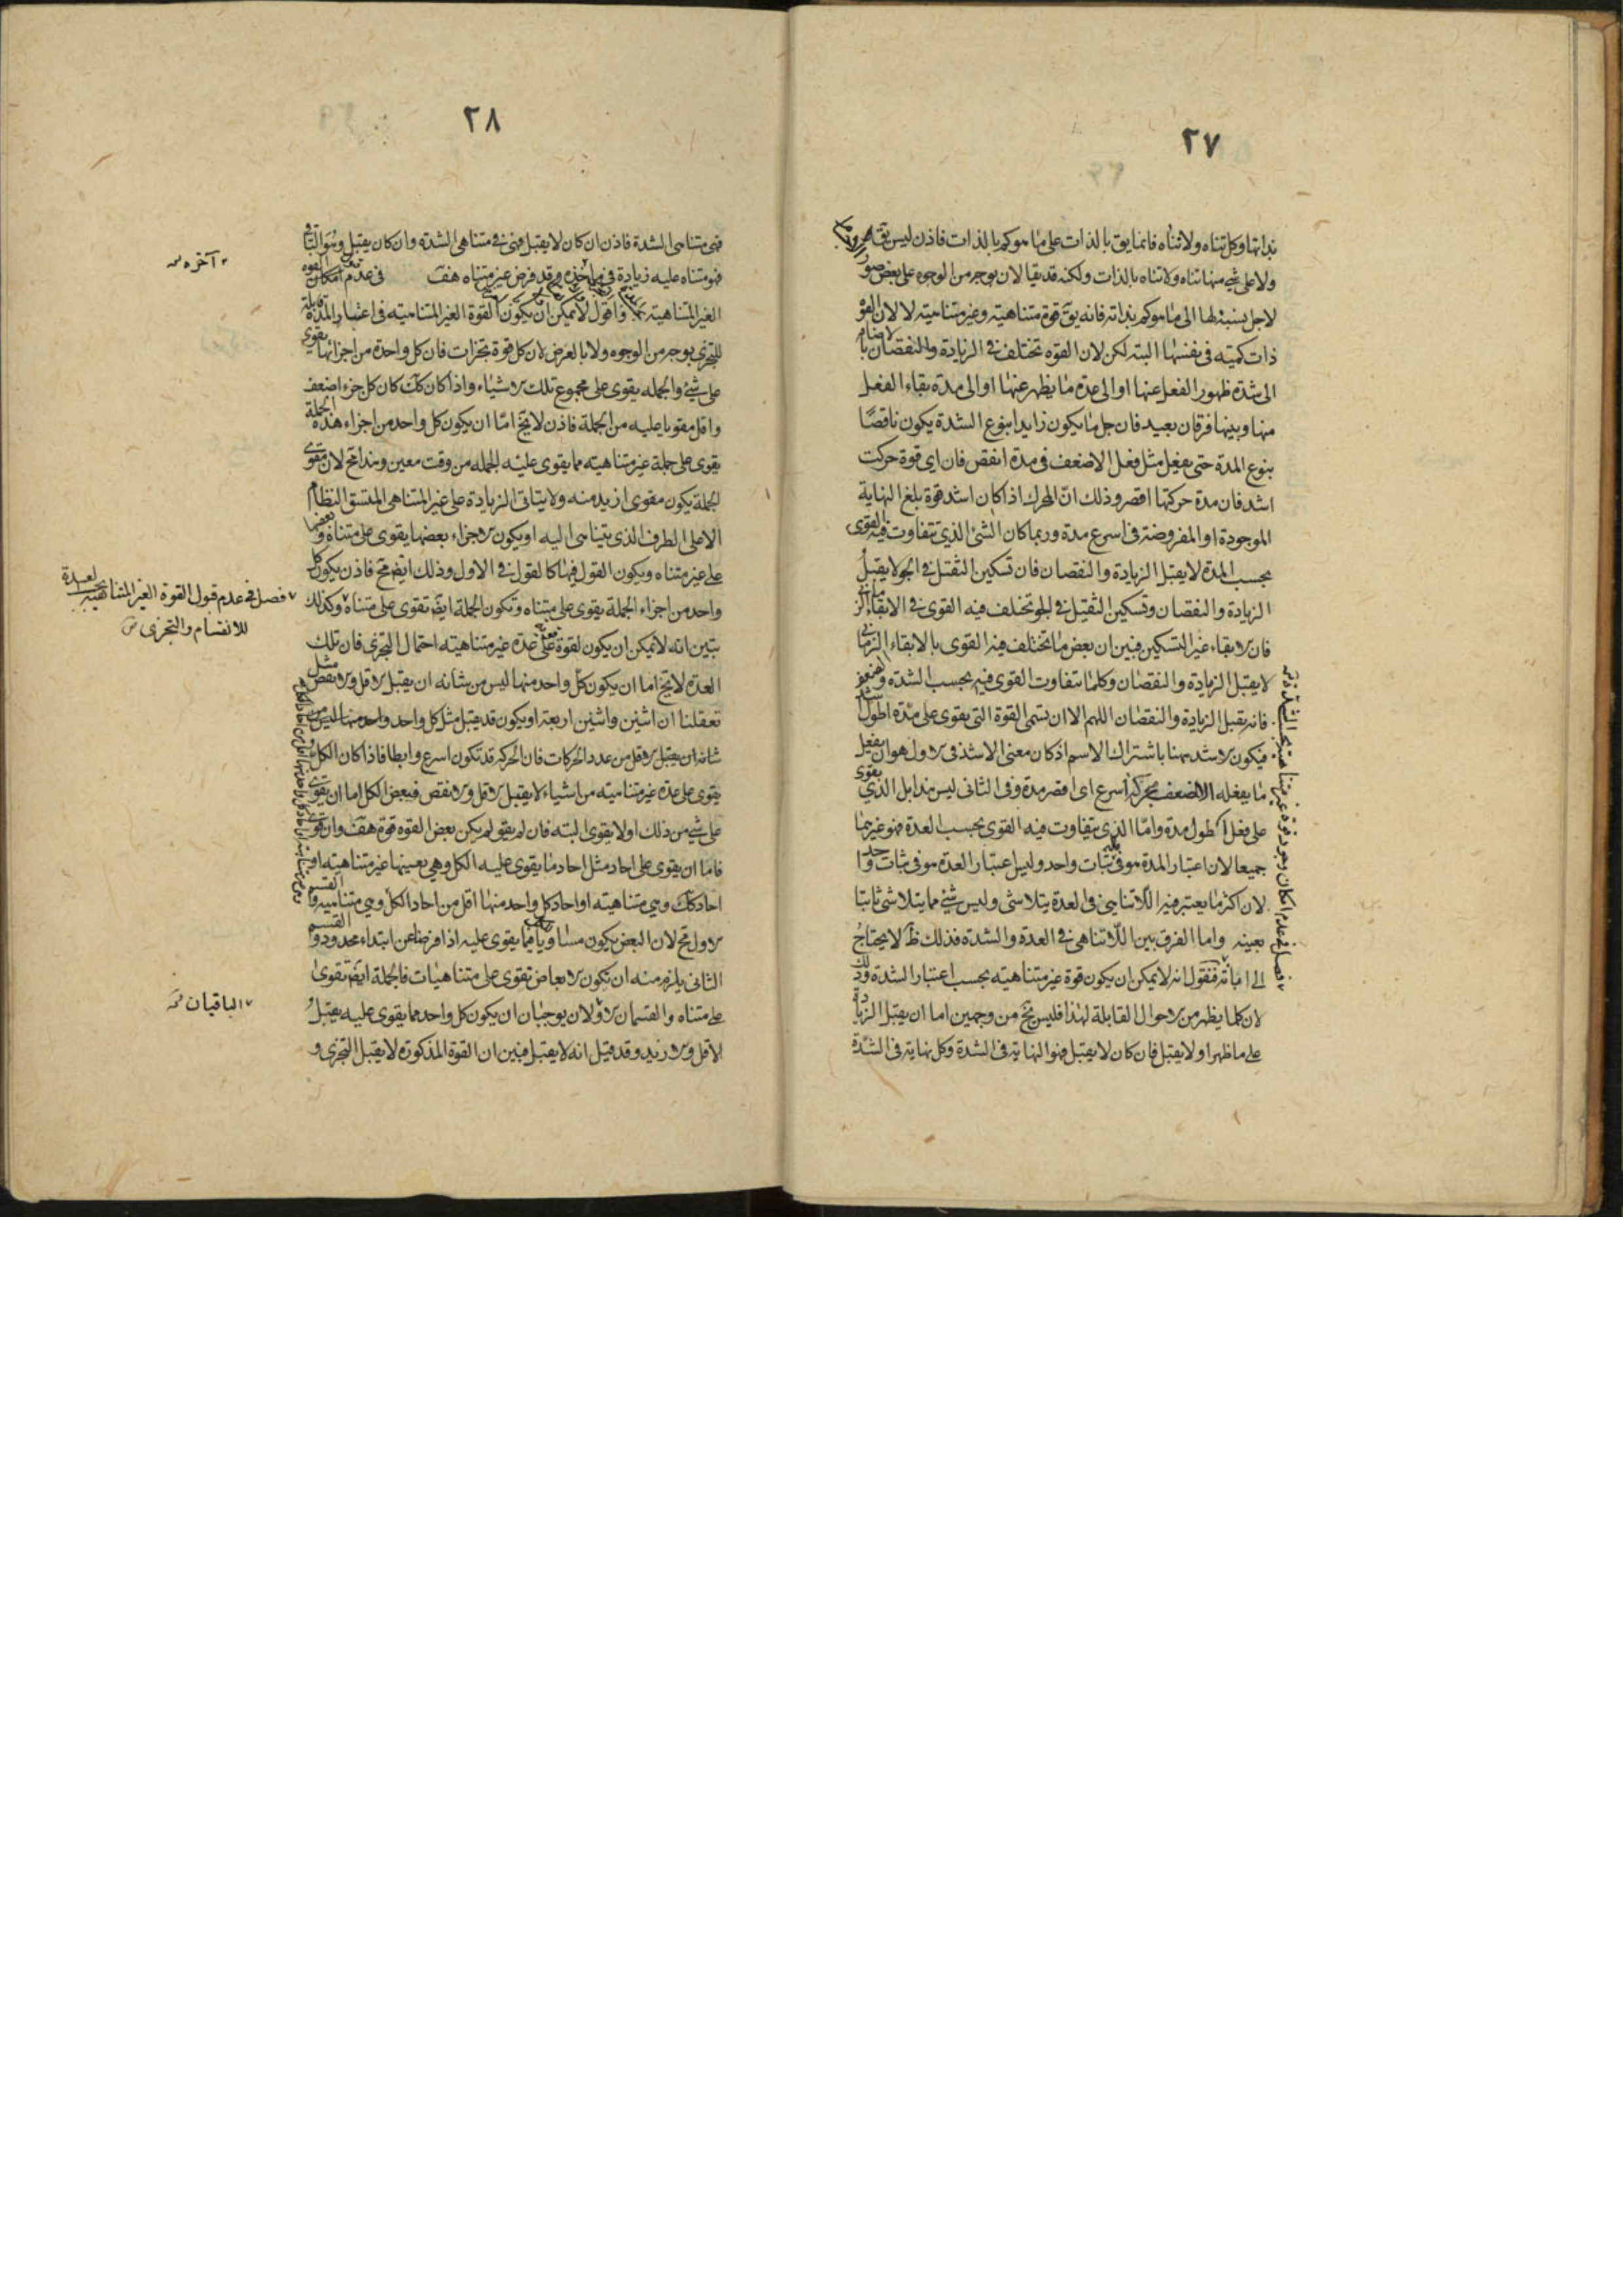 ٢٧
بذاتها وكل تناه ولا تناه فانما يق بالذات على ما هو كم بالذات فاذن ليس يق
ولا على شئ منها تناه ولا تناه بالذات ولكنه قد يقال لان بوجه من الوجوه على بعض صور
لاجل نسبة لها الى ما هو كم بذاته فانه يق قوة متناهية وغير متناهية لا لان القوة
ذات كمية فى نفسها البتة لكن لان القوه تختلف فى الزيادة والنقصان بالاضافة
الى شدة ظهور الفعل عنها او الى عدة ما يظهر عنها او الى مدة بقاء الفعل
منها وبينها فرقان بعيد فان جل ما يكون زايدا بنوع الشدة يكون ناقصا
بنوع المدة حتى يفعل مثل فعل الاضعف فى مدة انقص فان اى قوة حركت
اشد فان مدة حركتها اقصر وذلك ان المحرك اذا كان اشد قوة بلغ النهاية
الموجودة او المفروضة فى اسرع مدة وربما كان الشئ الذي تتفاوت فيه القوى
بحسب المدة لا يقبل الزيادة والنقصان فان تسكين الثقيل فى الجو لا يقبل
الزيادة والنقصان وتسكين الثقيل فى الجو تختلف فيه القوى فى الابقاء الزمانى
فان الابقاء غير التسكين فبين ان بعض ما تختلف فيه القوى بالابقاء الزمانى
لا يقبل الزيادة والنقصان وكلما تتفاوت القوى فيه بحسب الشدة
فانه يقبل الزيادة والنقصان اللهم الا ان تسمى القوة التى يقوى على مدة اطول
فيكون الاشد ههنا باشتراك الاسم اذ كان معنى الاشد فى الاول هو ان يفعل
ما يفعله الاضعف بحركة اسرع اى اقصر مدة وفى الثانى ليس هذا بل الذي يقوى
على فعل اطول مدة واما الذى يتفاوت فيه القوى بحسب العدة فهو غيرهما
جميعا لان اعتبار المدة هو فى ثبات واحد وليس اعتبار العدة هو فى ثبات واحد
لان اكثر ما يعتبر فيه اللاتناهى فى العدة يتلاشى وليس شئ مما يتلاشى ثابتا
بعينه واما الفرق بين اللاتناهى فى العدة والشدة فذلك ظ لا يحتاج
الى اثباته فنقول انه لا يمكن ان يكون قوة غير متناهية بحسب اعتبار الشدة وذلك
لان كلما يظهر من الاحوال القابلة لهذا فليس يخ من وجهين اما ان يقبل الزيادة
على ما ظهر او لا يقبل فان كان لا يقبل فهو النهاية فى الشدة وكل نهاية فى الشدة
فصل فى عدم امكان وجود قوة غير متناهية بحسب الشدة
٢٨
فهى متناهى الشدة فاذن ان كان لا يقبل فهى متناهى الشدة وان كان يقبل
فهو متناه عليه زيادة فى وقد فرض غير متناه هف فى عدم امكان
الغير المتناهية واقول لا يمكن ان يكون القوة الغير المتناهية فى اعتبار المدة قابلة
للتجزى بوجه من الوجوه ولا بالعرض لان كل قوة تجزات فان كل واحدة من اجزائها يقوى
على شئ والجملة يقوى على مجموع تلك الاشياء واذا كان كك كان كل جزء اضعف
واقل مقويا عليه من الجملة فاذن لا يخ اما ان يكون كل واحد من اجزاء هذه الجملة
يقوى على جملة غير متناهية مما يقوى عليه الجملة من وقت معين وهذا مح لان مقوى
الجملة يكون مقوى ازيد منه ولا يتاتى الزيادة على غير المتناهى المتسق النظام
الا على الطرف الذى يتناهى اليه او يكون الاجزاء بعضها يقوى على متناه وبعضها
على غير متناه ويكون القول فيها كالقول فى الاول وذلك ايض مح فاذن يكون كل
واحد من اجزاء الجملة يقوى على متناه وتكون الجملة ايض تقوى على متناه وكذلك
تبين انه لا يمكن ان يكون لقوة على عدة غير متناهية احتمال التجزى فان تلك
العدة لا يخ اما ان يكون كل واحد منها ليس من شانه ان يقبل الاقل والانقص مثل
تعقلنا ان اثنين واثنين اربعة او يكون قد يقبل مثل كل واحد واحد منها ليس من
شانه ان يقبل الاقل من عدد الحركات فان الحركة قد تكون اسرع وابطا فاذا كان الكل
يقوى على عدة غير متناهية من اشياء لا يقبل الاقل والانقص فبعض الكل اما ان يقوى
على شئ من ذلك او لا يقوى البتة فان لم يقو لم يكن بعض القوه قوة هف وان قوى
فاما ان يقوى على احاد مثل احاد ما يقوى عليه الكل وهى بعينها غير متناهية او
احاد كك وهى متناهية او احاد كل واحد منها اقل من احاد الكل وهى متناهية والقسم
الاول مح لان البعض يكون مساويا فيما يقوى عليه اذا فرضنا من ابتداء محدود والقسم
الثانى يلزم منه ان تكون الابعاض تقوى على متناهيات فالجملة ايض تقوى
على متناه والقسمان الاولان يوجبان ان يكون كل واحد مما يقوى عليه يقبل
الاقل والازيد وقد قيل انه لا يقبل فبين ان القوة المذكورة لا يقبل التجزى و
آخره
فصل فى عدم قبول القوة الغير المتناهية بحسب العدة
للانقسام والتجزى
الباقيان